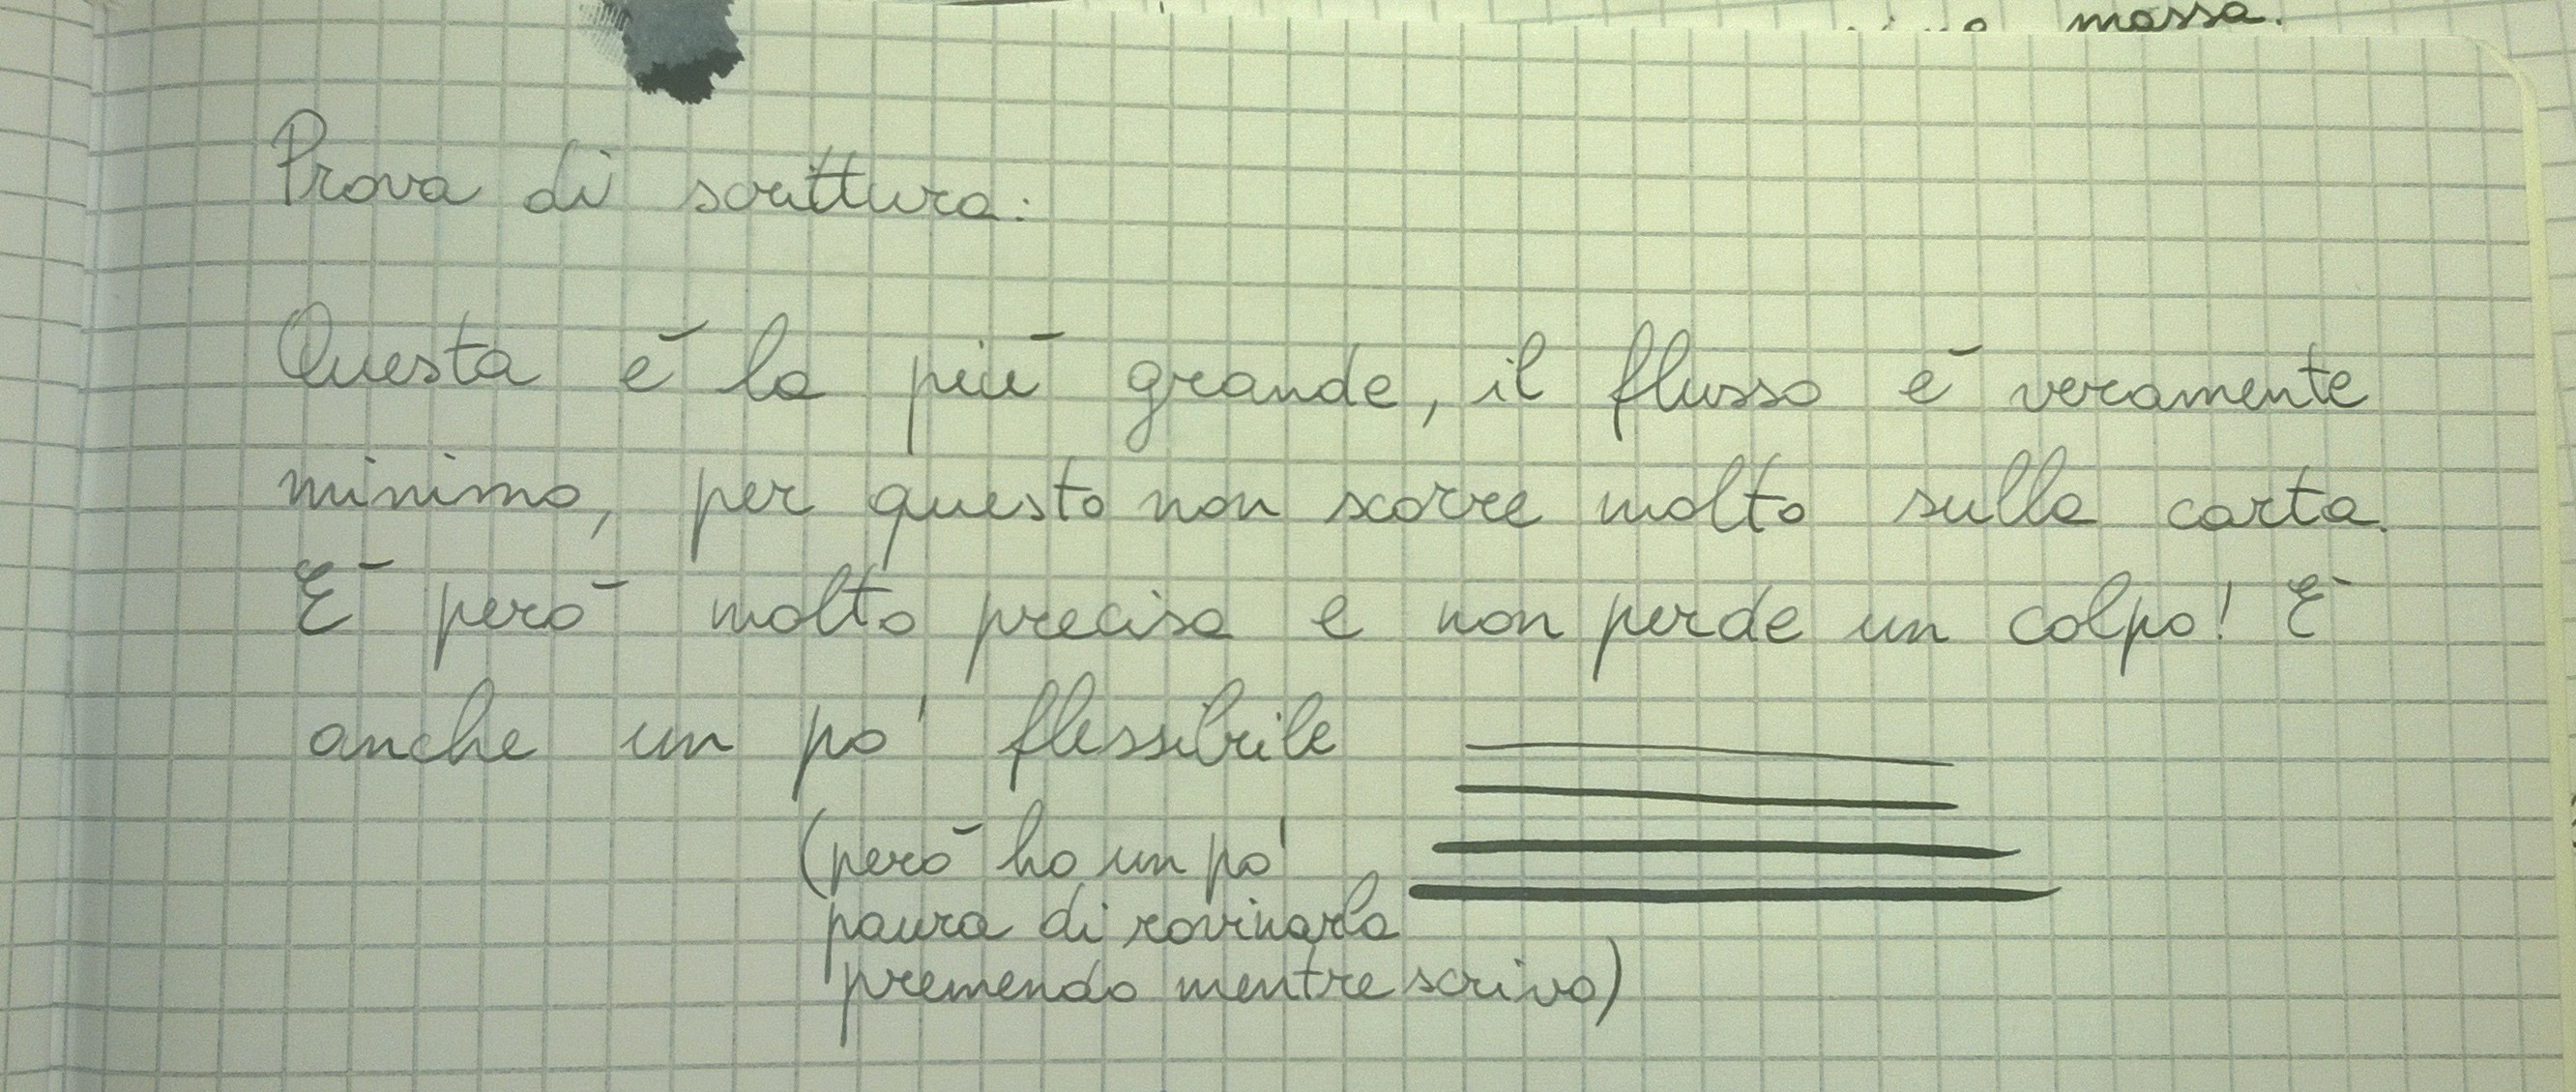 massa.
Prova di scrittura:
Questa è la più grande, il flusso è veramente
minimo, per questo non scorre molto sulla carta.
È però molto precisa e non perde un colpo! È
anche un po' flessibile
(però ho un po'
paura di rovinarla
premendo mentre scrivo)